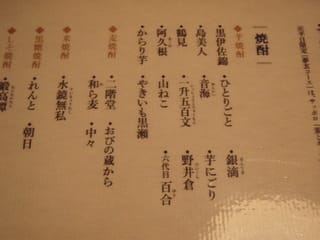 焼酎
◆芋焼酎
・黒伊佐錦
・ひとりごと
・銀滴
・島美人
・音海
・芋にごり
・鶴見
・一升五百文
・野井倉
・阿久根
・山ねこ
・六代目百合
・からり芋
・やきいも黒瀬
◆麦焼酎
・二階堂
・おびの蔵から
・和ら麦
・中々
◆米焼酎
・水鏡無私
◆黒糖焼酎
・れんと
・朝日